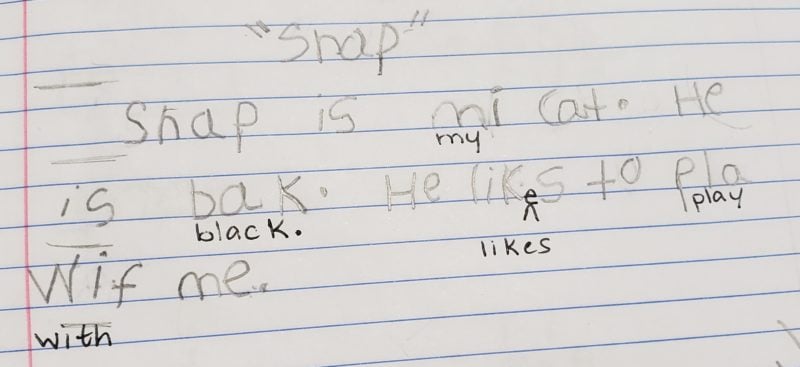 "Snap"
Snap is mi cat. He
my
is bak. He likes to pla
black. likes play
Wif me.
with